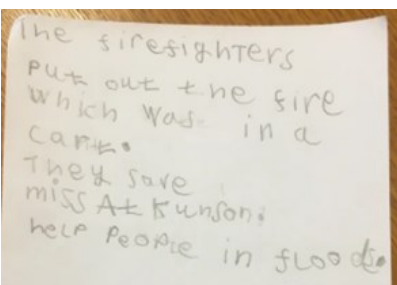 The firefighters
put out the fire
which was in a
cart.
They save
miss Atkunson.
help people in floods.